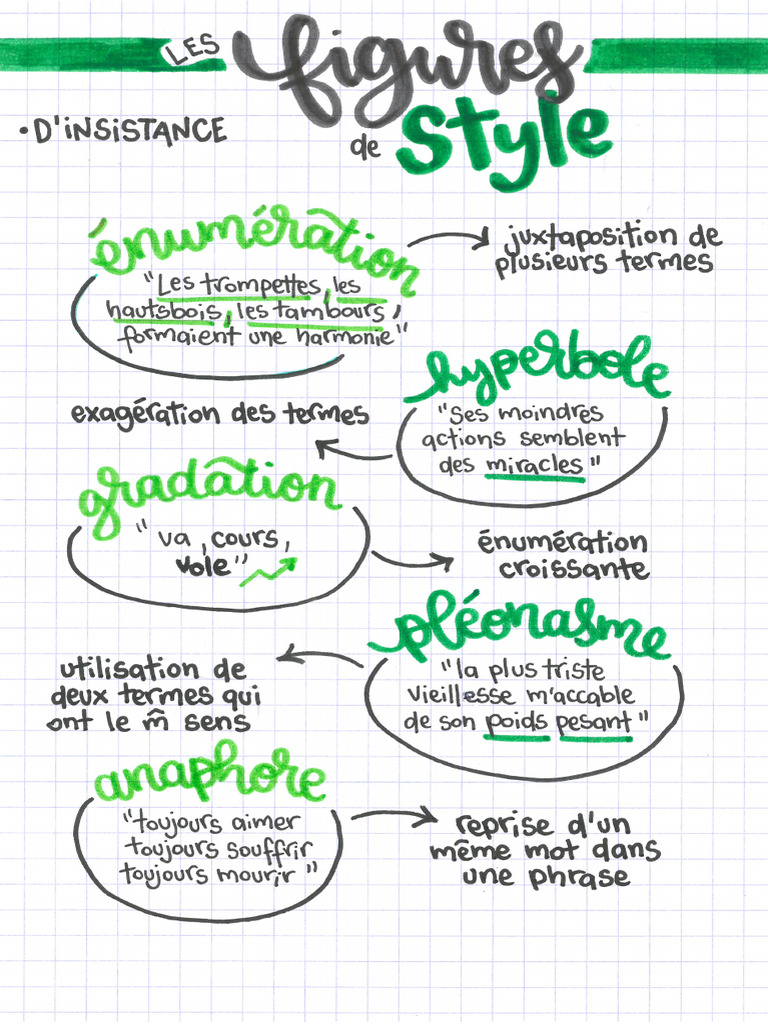 LES figures
de style
• D'INSISTANCE
énumération
"Les trompettes, les
hautsbois, les tambours,
formaient une harmonie"
juxtaposition de
plusieurs termes
hyperbole
"Ses moindres
actions semblent
des miracles"
exagération des termes
gradation
" va, cours,
vole"
énumération
croissante
pléonasme
"la plus triste
vieillesse m'accable
de son poids pesant"
utilisation de
deux termes qui
ont le m̂ sens
anaphore
"toujours aimer
toujours souffrir
toujours mourir"
reprise d'un
même mot dans
une phrase